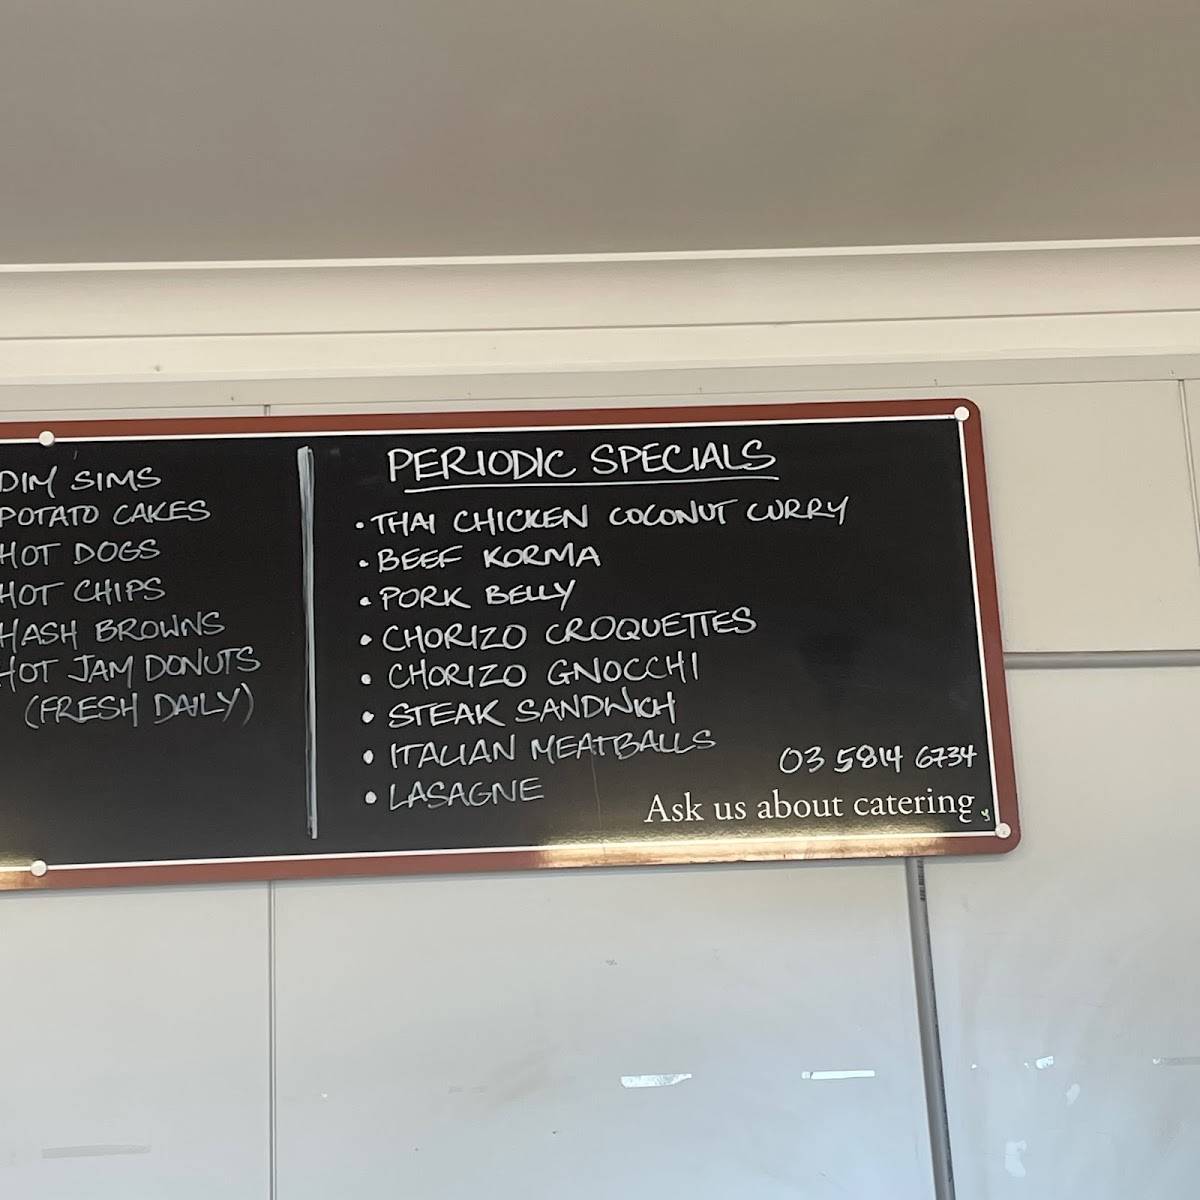 DIM SIMS
POTATO CAKES
HOT DOGS
HOT CHIPS
HASH BROWNS
HOT JAM DONUTS
(FRESH DAILY)
PERIODIC SPECIALS
• THAI CHICKEN COCONUT CURRY
• BEEF KORMA
• PORK BELLY
• CHORIZO CROQUETTES
• CHORIZO GNOCCHI
• STEAK SANDWICH
• ITALIAN MEATBALLS
• LASAGNE
03 5814 6734
Ask us about catering